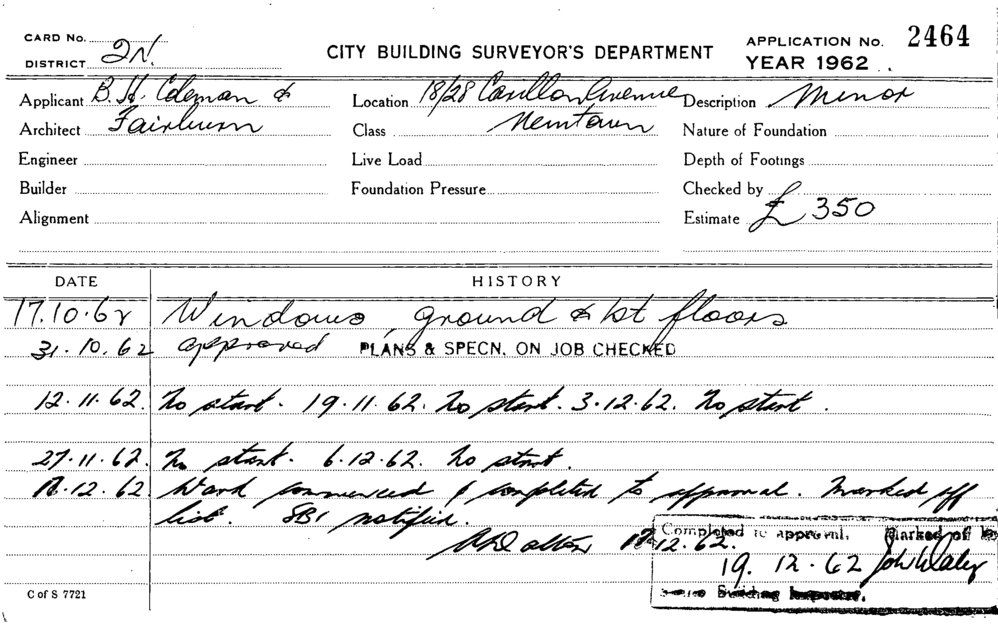 CARD No.
DISTRICT 2N.
CITY BUILDING SURVEYOR'S DEPARTMENT
APPLICATION No. 2464
YEAR 1962
Applicant B. H. Coleman &
Location 18/28 Carillon Avenue
Description Minor
Architect Fairburn
Class Newtown
Nature of Foundation
Engineer
Live Load
Depth of Footings
Builder
Foundation Pressure
Checked by
Alignment
Estimate £ 350
DATE HISTORY
17.10.62 Windows, ground & 1st floors
31.10.62 approved PLANS & SPECN. ON JOB CHECKED
12.11.62. No start. 19.11.62. No start. 3.12.62. No start.
27.11.62. No start. 6.12.62. No start.
12.62 Work commenced & completed to approval. Marked off
list. SBI notified.
12.62.
Completed to approval, Marked off
19.12.62
Senior Building Inspector.
C of S 7721